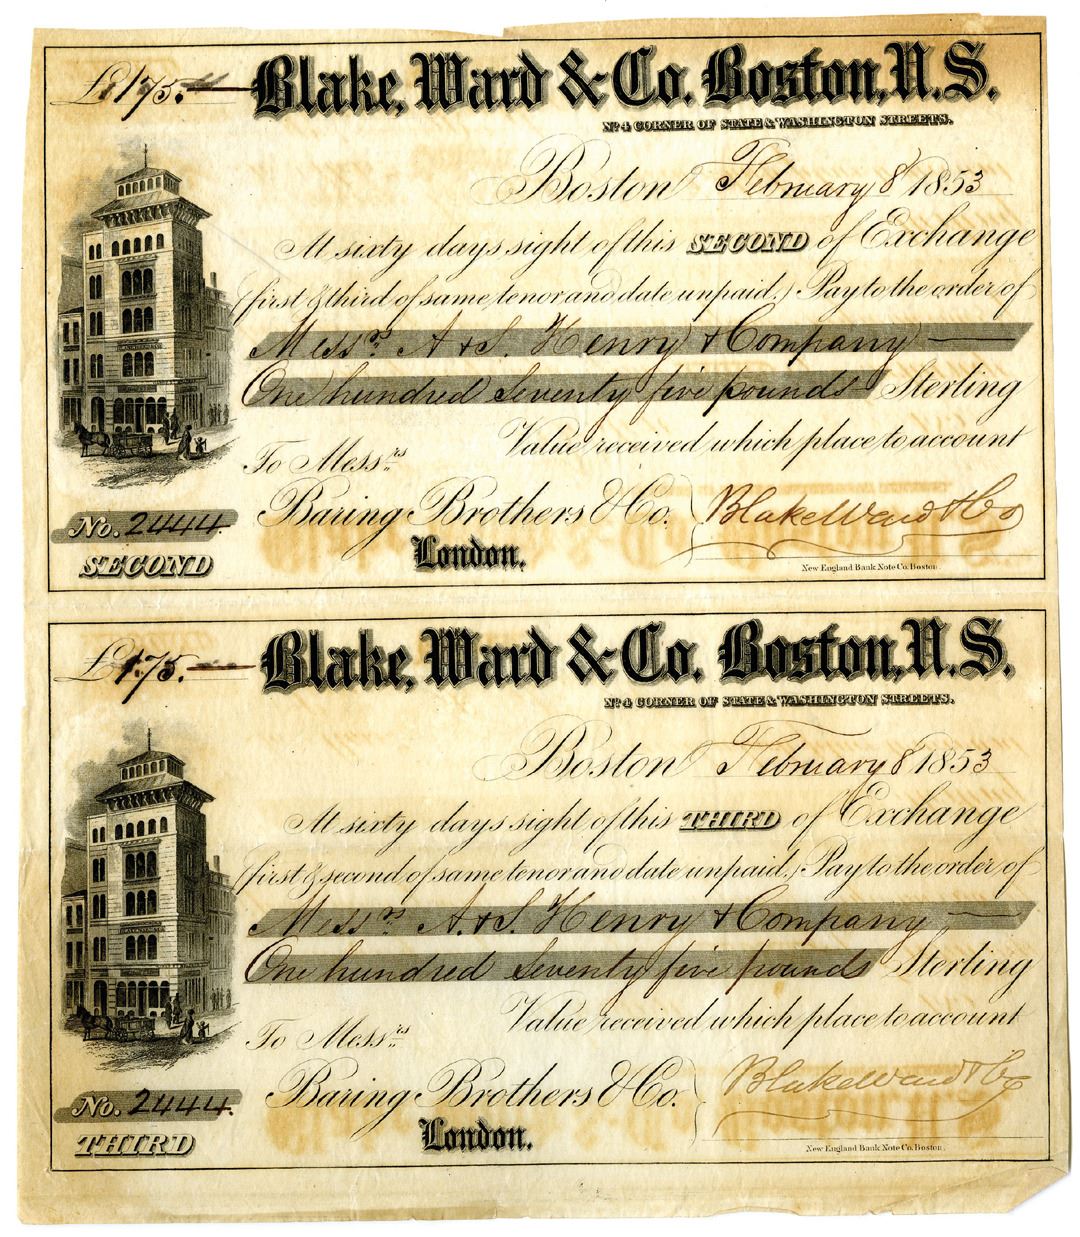 £175.—
Blake, Ward & Co. Boston, U.S.
No. 4 CORNER OF STATE & WASHINGTON STREETS.
Boston February 8 1853
At sixty days sight of this SECOND of Exchange
(first & third of same tenor and date unpaid.) Pay to the order of
Messrs A & S. Henry & Company —
One hundred seventy five pounds Sterling
Value received which place to account
To Messrs
Baring Brothers & Co. Blake Ward & Co
London.
No. 2444
SECOND
New England Bank Note Co. Boston.
£175.—
Blake, Ward & Co. Boston, U.S.
No. 4 CORNER OF STATE & WASHINGTON STREETS.
Boston February 8 1853
At sixty days sight of this THIRD of Exchange
(first & second of same tenor and date unpaid.) Pay to the order of
Messrs A. & S. Henry & Company —
One hundred seventy five pounds Sterling
Value received which place to account
To Messrs
Baring Brothers & Co. Blake Ward & Co
London.
No. 2444
THIRD
New England Bank Note Co. Boston.